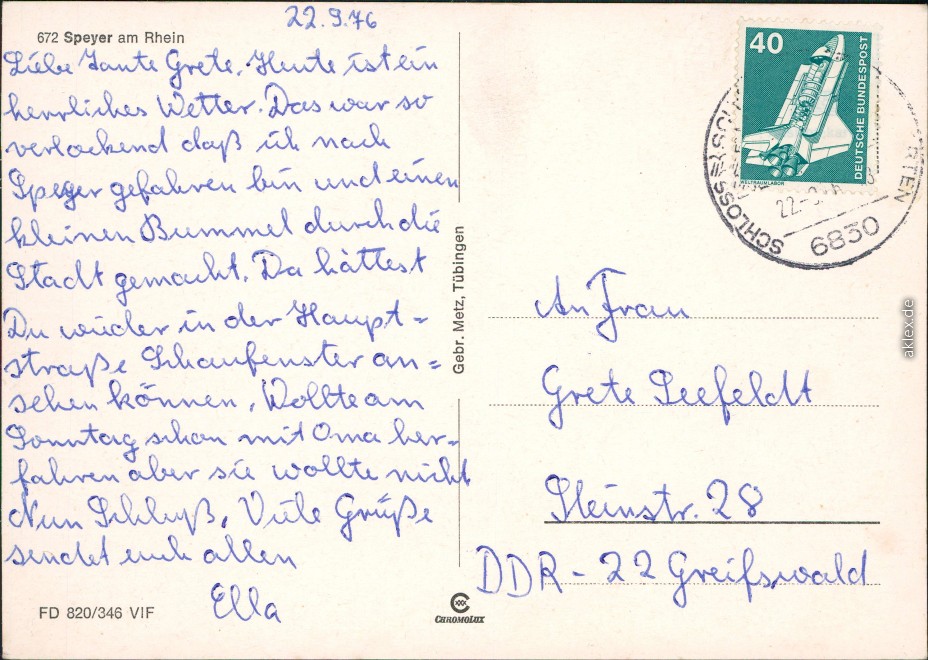 22.9.76
672 Speyer am Rhein
Liebe Tante Grete. Heute ist ein
herrliches Wetter. Das war so
verlockend daß ich nach
Speyer gefahren bin und einen
kleinen Bummel durch die
Stadt gemacht. Da hättest
Du wieder in der Haupt=
straße Schaufenster an=
sehen können. Wollte am
Sonntag schon mit Oma her-
fahren aber sie wollte nicht
Nun Schluß. Viele Grüße
sendet euch allen
Ella
FD 820/346 VIF
Gebr. Metz, Tübingen
CHROMOLUX
40
DEUTSCHE BUNDESPOST
WELTRAUMLABOR
SCHLOSS
RTEN
22.-9.
6830
An Frau
Grete Seefeldt
Steinstr. 28
DDR - 22 Greifswald
aklex.de